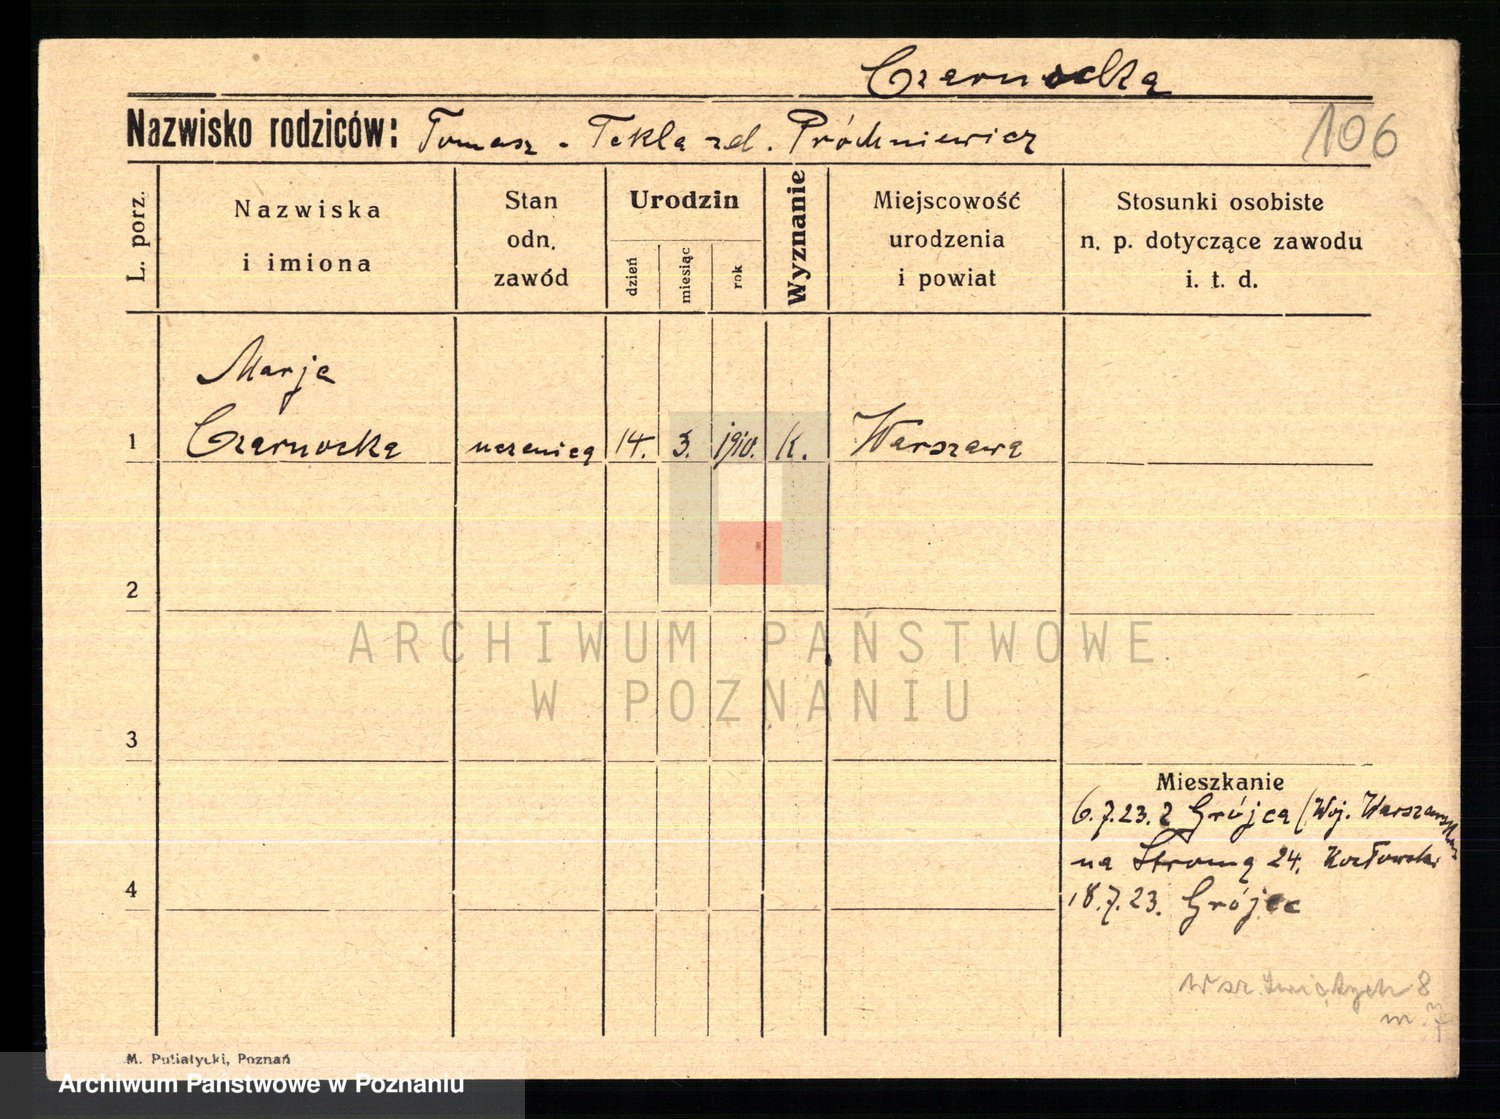 Czarnocka
Nazwisko rodziców: Tomasz - Tekla zd. Próchniewicz
106
L. porz.
Nazwiska
i imiona
Stan
odn.
zawód
Urodzin
dzień
miesiąc
rok
Wyznanie
Miejscowość
urodzenia
i powiat
Stosunki osobiste
n. p. dotyczące zawodu
i. t. d.
Marja
1 Czarnocka uczenica 14. 3. 1910. K. Warszawa
2
ARCHIWUM PAŃSTWOWE
W POZNANIU
3
Mieszkanie
6.7.23. z Grójca (Woj. Warszawskie
na Stromą 24. Kozłowski
4
18.7.23. Grójec
Wsz. Świętych 8
m. 7
M. Putiatycki, Poznań
Archiwum Państwowe w Poznaniu